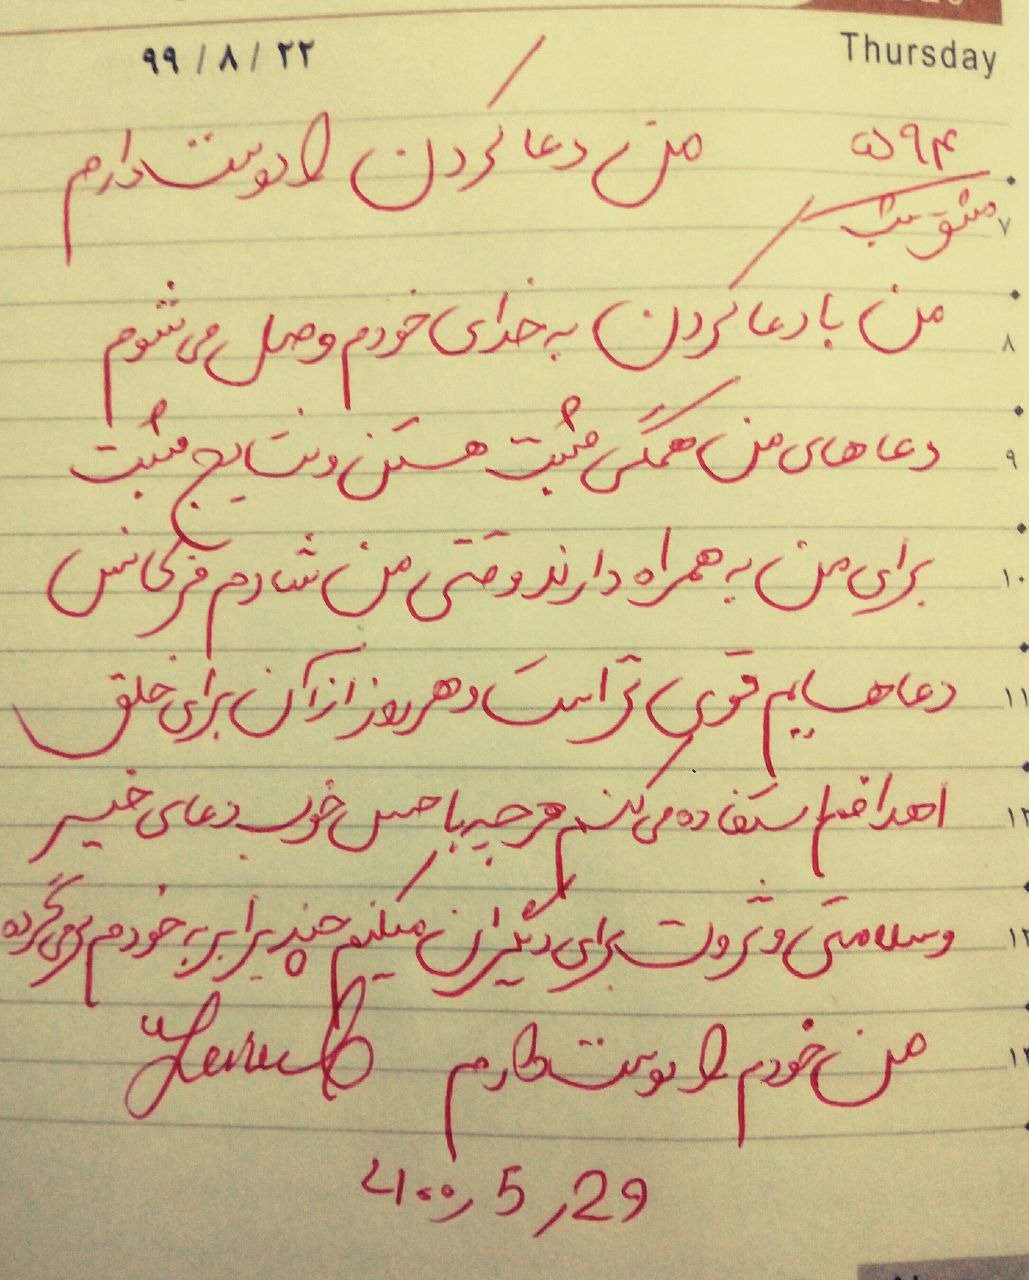 Thursday
۹۹ / ۸ / ۲۲
۵۹۴
مشق شب
من دعا کردن را دوست دارم
۷
من با دعا کردن به خدای خودم وصل می شوم
۸
دعاهای من همگی مثبت هستن و نتایج مثبت
۹
برای من به همراه دارند وقتی من شادم فرکانس
۱۰
دعاهایم قوی تر است و هر روز از آن برای خلق
۱۱
اهدافم استفاده می کنم هر چه با حس خوب دعای خیر
۱۲
و سلامتی و ثروت برای دیگران میکنیم چند برابر به خودم برمی گرده
۱۳
من خودم را دوست دارم
۱۴
29, 5, ۱۴۰۰